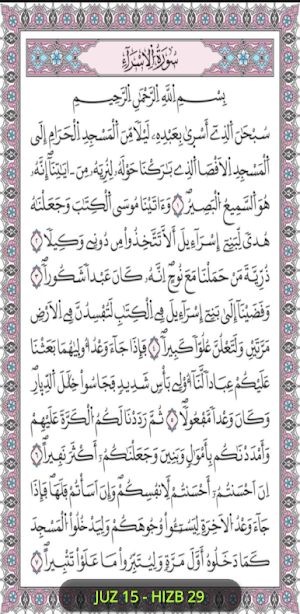 سُورَةُ الْإِسْرَاءِ
بِسْمِ اِللَّهِ اِلرَّحْمَٰنِ اِلرَّحِيمِ
سُبْحَٰنَ اَلذِےٓ أَسْرَىٰ بِعَبْدِهِۦ لَيْلاٗ مِّنَ اَلْمَسْجِدِ اِلْحَرَامِ إِلَى
اَلْمَسْجِدِ اِلَاقْصَا اَلذِے بَٰرَكْنَا حَوْلَهُۥ لِنُرِيَهُۥ مِنَ ـايَٰتِنَآ إِنَّهُۥ
هُوَ اَلسَّمِيعُ اُلْبَصِيرُ ١ وَءَاتَيْنَا مُوسَى اَلْكِتَٰبَ وَجَعَلْنَٰهُ
هُدىٗ لِّبَنِےٓ إِسْرَآءِيلَ أَلَّا تَتَّخِذُواْ مِن دُونِے وَكِيلاٗ ٢
ذُرِّيَّةَ مَنْ حَمَلْنَا مَعَ نُوحٍ اِنَّهُۥ كَانَ عَبْداٗ شَكُوراٗ ٣
وَقَضَيْنَآ إِلَىٰ بَنِےٓ إِسْرَآءِيلَ فِے اِلْكِتَٰبِ لَتُفْسِدُنَّ فِے اِلَارْضِ
مَرَّتَيْنِ وَلَتَعْلُنَّ عُلُوّاٗ كَبِيراٗ ٤ فَإِذَا جَآءَ وَعْدُ أُولَىٰهُمَا بَعَثْنَا
عَلَيْكُمْ عِبَاداٗ لَّنَآ أُوْلِے بَأْسٖ شَدِيدٖ فَجَاسُواْ خِلَٰلَ اَلدِّيارِ
وَكَانَ وَعْداٗ مَّفْعُولاٗ ٥ ثُمَّ رَدَدْنَا لَكُمُ اُلْكَرَّةَ عَلَيْهِمْ
وَأَمْدَدْنَٰكُم بِأَمْوَٰلٖ وَبَنِينَ وَجَعَلْنَٰكُمُۥٓ أَكْثَرَ نَفِيراٗ ٦
اِنَ اَحْسَنتُمُۥٓ أَحْسَنتُمْ لِأَنفُسِكُمْ وَإِنَ اَسَأْتُمْ فَلَهَا فَإِذَا
جَآءَ وَعْدُ اُلَاخِرَةِ لِيَسُـُٔواْ وُجُوهَكُمْ وَلِيَدْخُلُواْ اُلْمَسْجِدَ
كَمَا دَخَلُوهُ أَوَّلَ مَرَّةٖ وَلِيُتَبِّرُواْ مَا عَلَوْاْ تَتْبِيراً ٧
JUZ 15 - HIZB 29